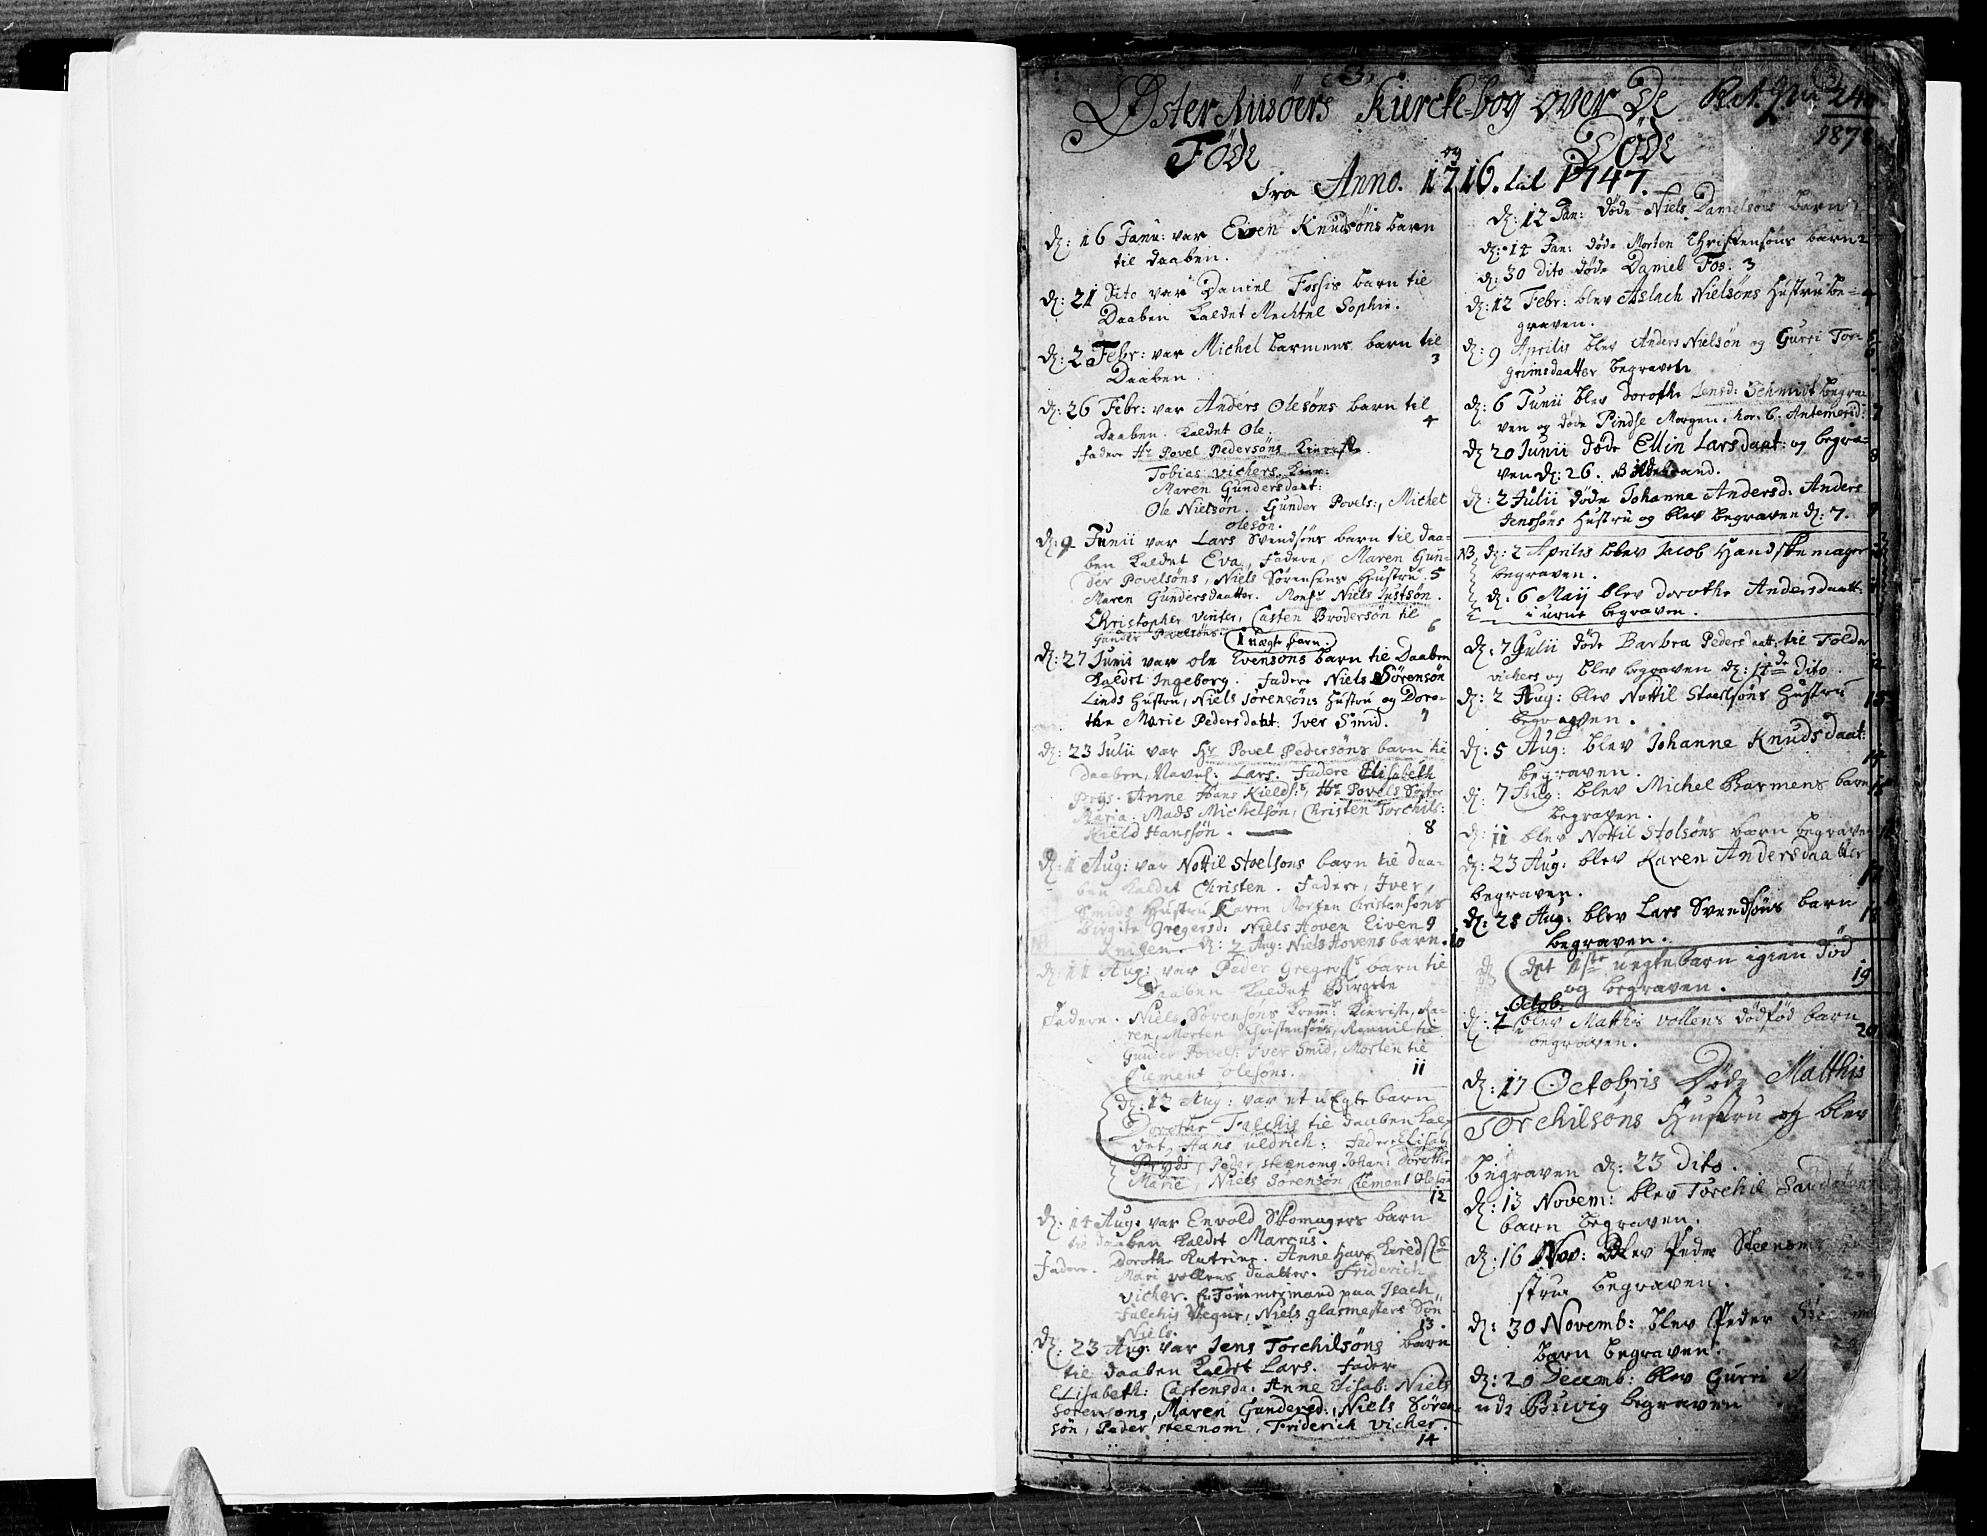 3.
Østerriisöers Kircke-bog over De
Föde og Döde
fra Anno. 1716. til 1747.
24
1878
d: 16 Janu: var Eiven Knudsöns barn
til daaben.
d: 21 Dito var Daniel Fossis barn til
Daaben kaldet Mechtel Sophie.
d: 2 Febr: var Michel barmens barn til
Daaben. 3
d: 26 Febr: var Anders Olesöns barn til
Daaben. kaldet Ole. 4
fadere Hr Povel Pedersöns
Tobias vichers
Maren Gundersdaat:
Ole Nielsön. Gunder Povels:, Michel
olesön.
d: 9 Junii var Lars Svendsöns barn til daa-
ben kaldet Eva, fadere, Maren Gun-
der Povelsöns, Niels Sörensens Hustru. 5
Maren Gundersdaatter. Monsr Niels Justsön.
Christopher Vinter, Casten Brodersön til
Gunder Povelsöns. 6
1 uægte barn.
d: 27 Junii var ole Evensöns barn til Daaben
kaldet Ingeborg. fadere Niels Sörensön
Linds Hustru, Niels Sörensöns Hustru og Doro-
the Marie Pedersdaat: Iver Smid. 7
d: 23 Julii var Hr Povel Pedersöns barn til
daaben, Lars. fadere Elisabeth
Prys. Anne Hans Kields: Hr Povels Söster
Maria. Mads Michelsön, Christen Torchils:
Kield Hanssön. 8
d: 1 Aug: var Nottil Stoelsons barn til daa-
ben kaldet Christen. fadere, Iver
Smids Hustru, Karen Morten Christensöns
Birgite Gregersd: Niels Hoven Eiven 9
Knudsen. d: 2 Aug: Niels Hovens barn. 10
d: 11 Aug: var Peder Gregers barn til
Daaben kaldet Birgete
Fadere. Niels Sörensöns
Morten Christensöns, til
Gunder Povels: Iver Smid, Morten til
Clement olesöns. 11
d: 12 Aug: var et uEgte barn
Dorothe Falchis til daaben kal-
det, Hans uldrich: fadere Elisab:
Pryds, Peder Steenoms Johan: Dorothe
Marie, Niels Sörensön Clement Olesön
12
d: 14 Aug: var Envold Skomagers barn
til daaben kaldet Marcus.
Fadere. Dorothe Katrine. Anne Hans Kields
Mari vollens daatter. Friderich
vicher. En Tömmermand paa Isach
Falchis Vegne, Niels glasmesters Sön
Niels. 13.
d: 23 Aug: var Jens Torchilsöns barn
til daaben kaldet Lars. fader
Elisabeth: Castensda: Anne Elisab: Niels
Sörensöns, Maren Gundersd:, Niels Sören-
sön, Peder steenom, Friderich vicher.
14
d: 12 Jan: döde Niels Danielsöns barn 1
d: 14 Jan: döde Morten Christensöns barn 2
d: 30 dito döde Daniel Fos. 3
d: 12 Febr: blev Aslach Nielsöns Hustru be- 4
graven.
d: 9 Aprilis blev Anders Nielsön og Gurri Tor- 5
grimsdaatter begraven 6
d: 6 Junii blev dorothe Jensd: Schmidt begra-
ven og döde Pindse Morgen, hor. 6. Antemerid: 7
d: 20 Junii döde Ellin Larsdaat: og begra-
ven d: 26. 8
d: 2 Julii döde Johanne Andersd: Anders
Jenssöns Hustru og blev begraven d: 7. 9
NB. d: 2 Aprilis blev Jacob Handskemager
begraven.
d: 6 Maij blev dorothe Andersdaatt:
begraven.
d: 7 Julii döde Barbra Pedersdaatt: til Tolder
vichers og blev begraven d: 14de dito. 12
d: 2 Aug: blev Nottil Stoelsöns Hustru 13
begraven.
d: 5 Aug: blev Johanne Knudsdaat:
begraven. 14
d: 7 Aug: blev Michel Barmens barn 15
begraven.
d: 11 blev Nottil Stolsöns barn begraven 16
d: 23 Aug: blev Karen Andersdaatter
begraven. 17
d: 25 Aug: blev Lars Svendsöns barn 18
begraven.
det 1ste uegte barn igien död
og begraven. 19
Octob:
d: 2 blev Matthis vollens dödföd barn
begraven. 20
d: 17 Octobris Döde Matthis
Torchilsöns Hustru og blev
begraven d: 23 Dito.
d: 13 Novem: blev Torchil
barn begraven.
d: 16 Nov: blev Peder Steenoms
stru begraven.
d: 30 Novemb: blev Peder
barn begraven.
d: 20 Decemb: blev Gurri
begraven